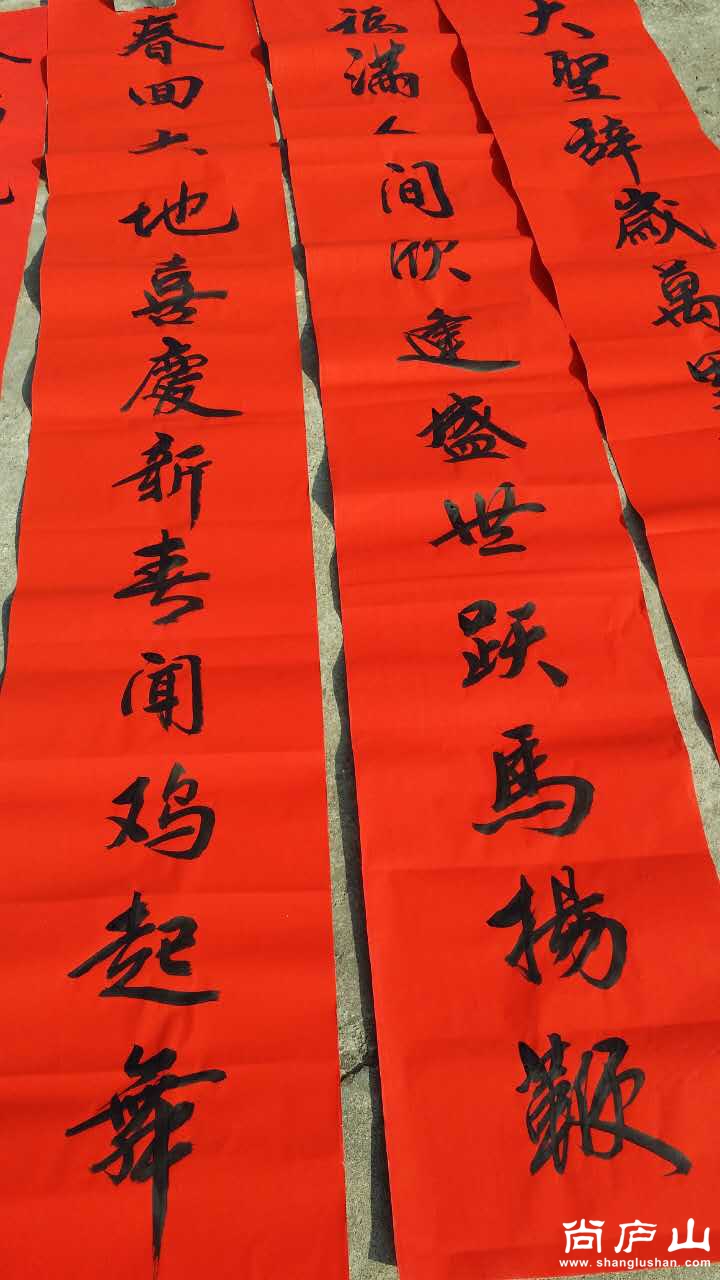 春回大地喜慶新春闻鸡起舞
福满人间欣逢盛世跃馬揚鞭
大聖辞歲萬里
尚庐山
www.shanglushan.com